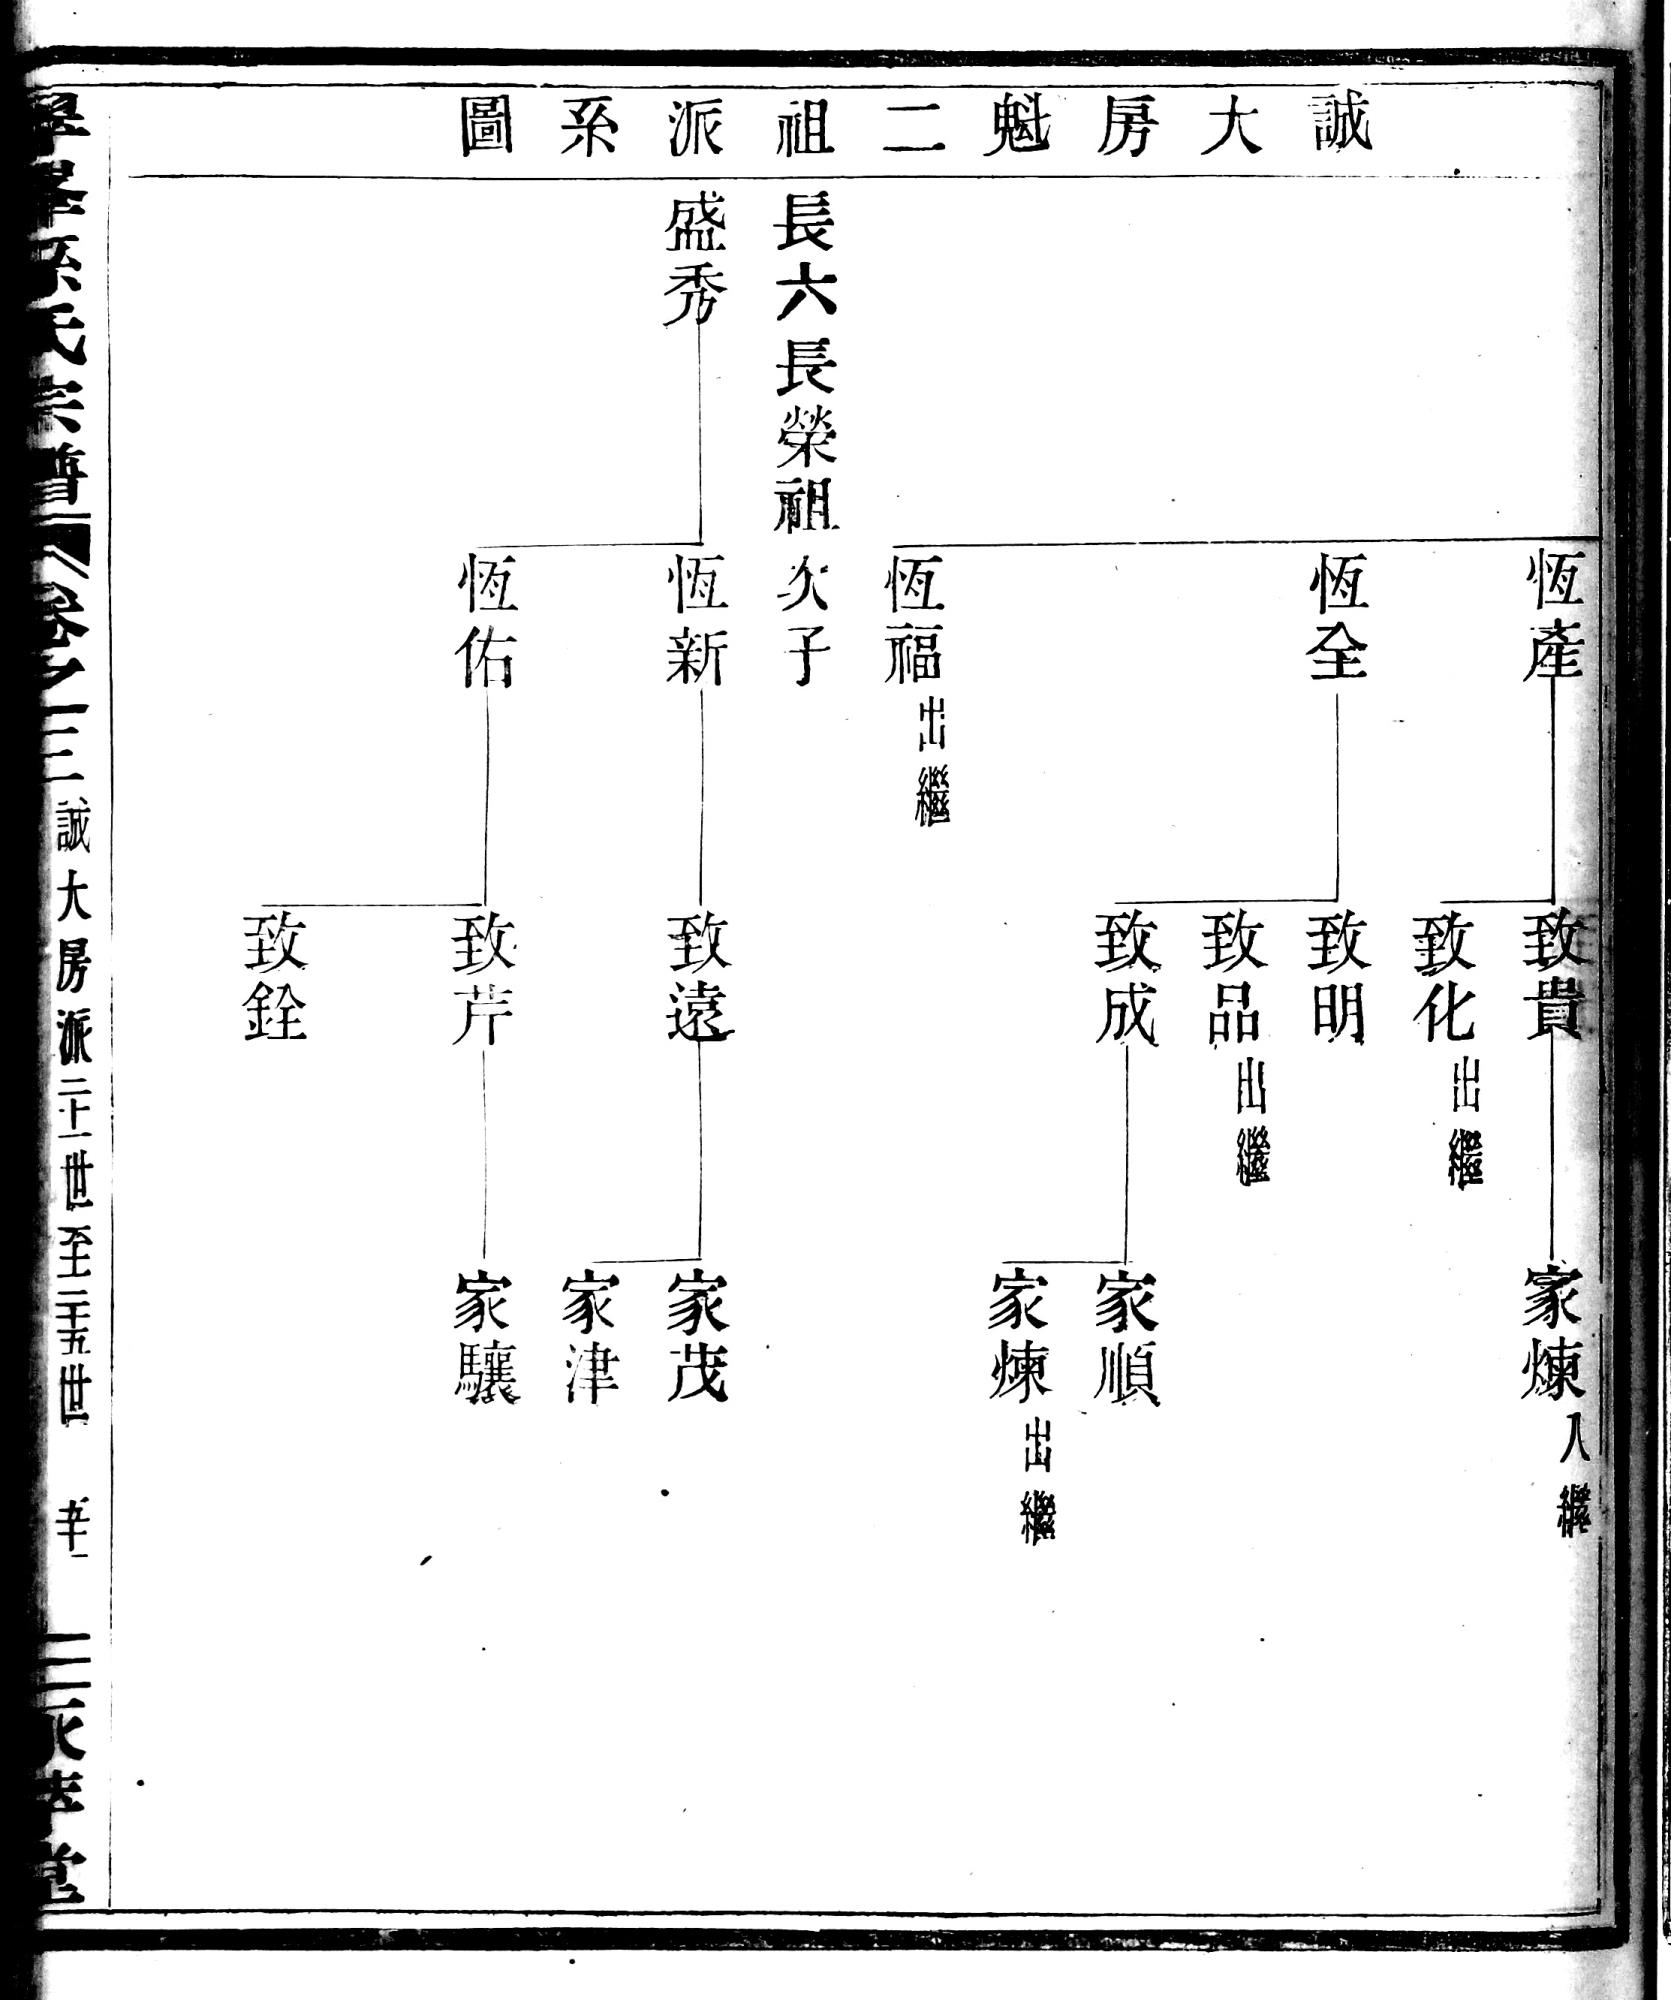 誠大房魁二祖派系圖
恆產
致貴
家煉入繼
致化出繼
恆全
致明
致品出繼
致成
家順
家煉出繼
恆福出繼
長六長榮祖次子
盛秀
恆新
致遠
家茂
家津
恆佑
致芹
家驤
致銓
孫氏宗譜
卷之三
誠大房派二十一世至二十五世
堂